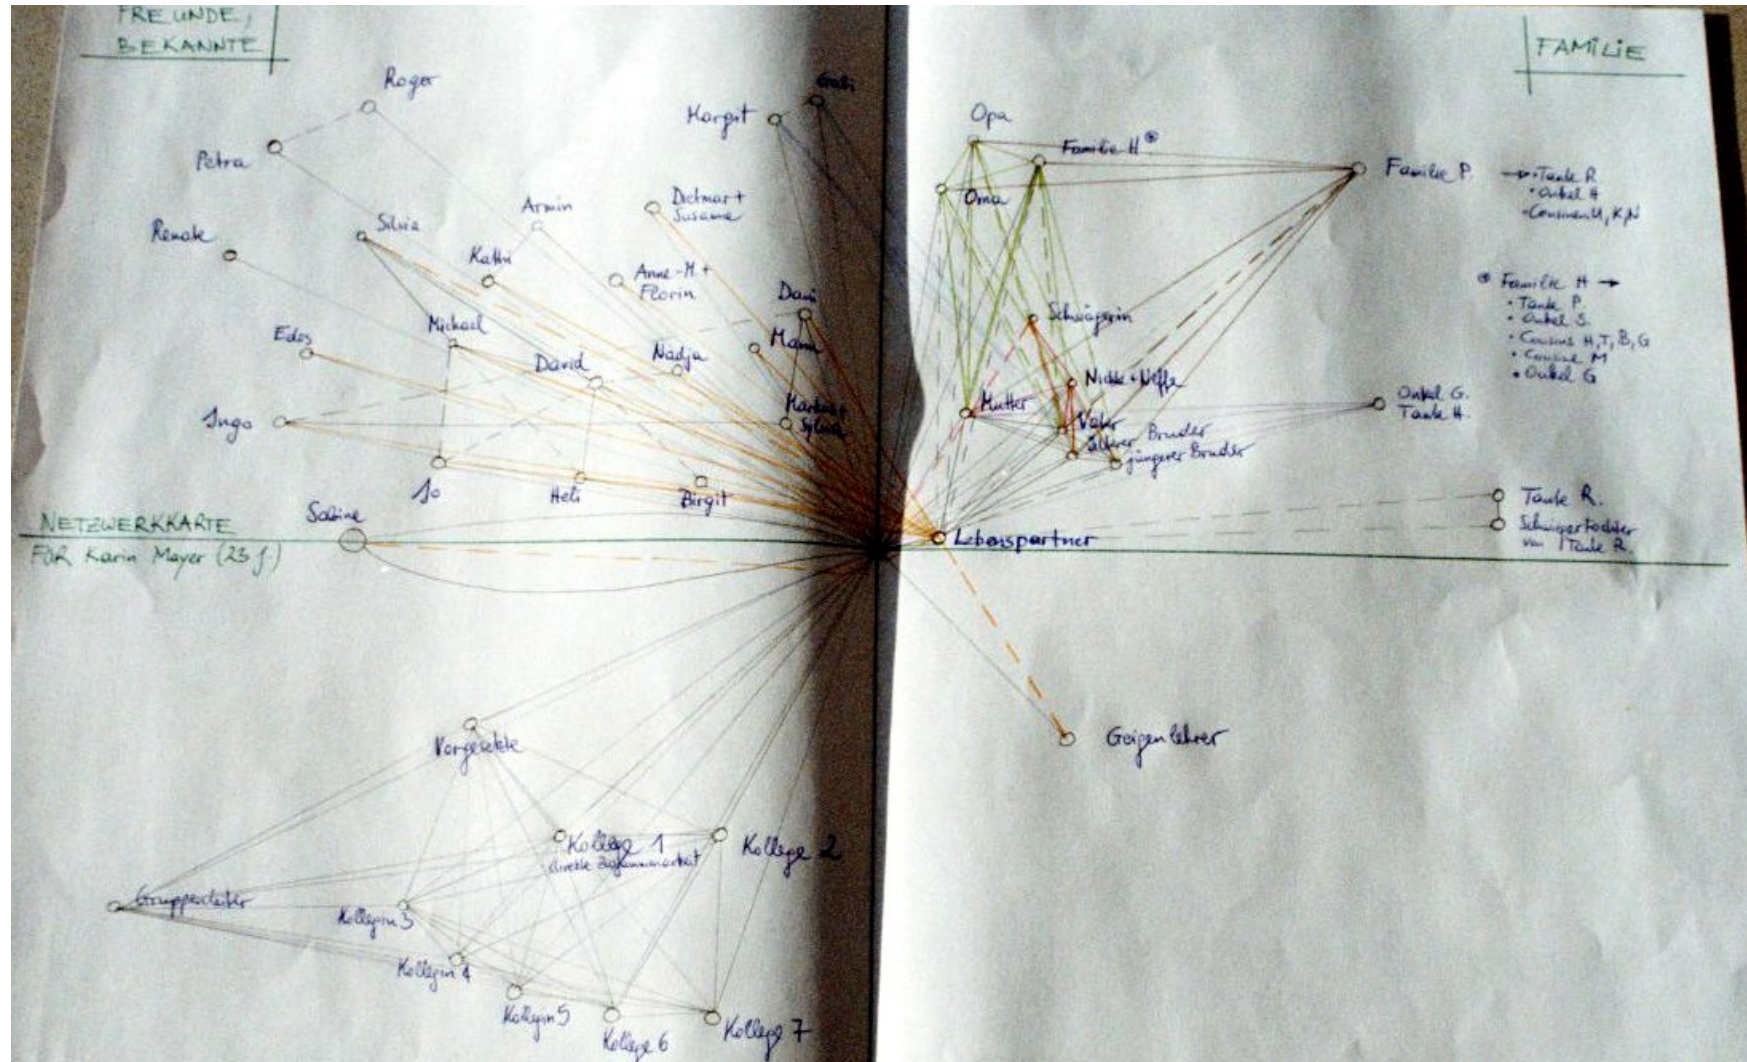 FREUNDE,
BEKANNTE
FAMILIE
NETZWERKKARTE
FÜR Karin Mayer (23 J.)
Roger
Petra
Renate
Silvia
Armin
Kathi
Dietmar +
Susanne
Anne-M. +
Florin
Margit
Gabi
Dani
Manu
Michael
Edes
David
Nadja
Ingo
Markus +
Sylvia
Jo
Heli
Birgit
Sabine
Opa
Familie H
Oma
Familie P.
→ • Tante R
• Onkel H
• Cousinen U, K, N
Familie H →
• Tante P.
• Onkel S.
• Cousins H, T, B, G
• Cousine M
• Onkel G
Schwägerin
Nichte + Neffe
Mutter
Vater
älterer Bruder
jüngerer Bruder
Onkel G.
Tante H.
Tante R.
Schwiegertochter
von Tante R.
Lebenspartner
Geigenlehrer
Vorgesetzte
Kollege 1
direkte Zusammenarbeit
Kollege 2
Gruppenleiter
Kollegin 3
Kollegin 4
Kollegin 5
Kollege 6
Kollege 7